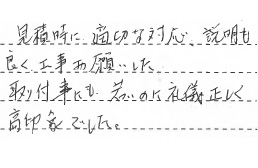 見積時に、適切な対応、説明も
良く工事お願いした
取付事にも若いのに礼儀正しく
高印象でした。